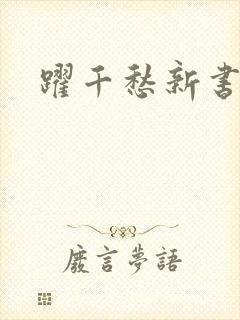 躍千愁新書
廢言夢語